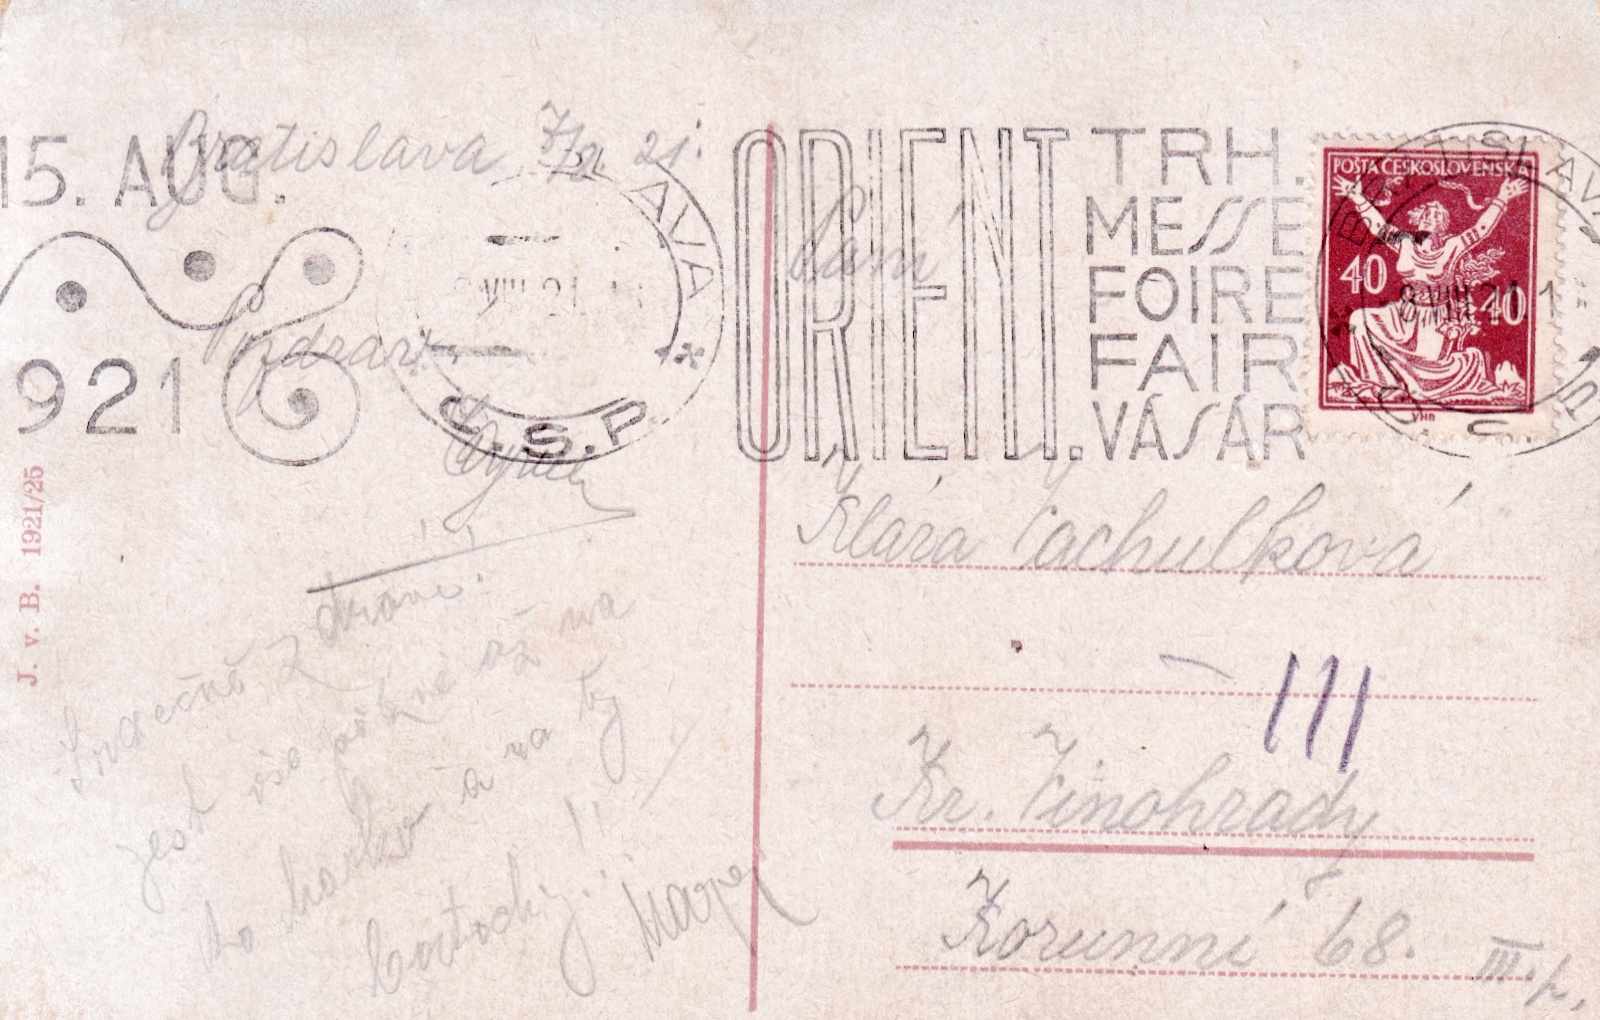 15. AUG.
921
Bratislava 7/8 21.
AVA
VIII 21
Č.S.P.
Pozdrav
ORIENT.
TRH.
MESSE
FOIRE
FAIR
VÁSÁR
POŠTA ČESKOSLOVENSKÁ
40 40
8 VIII 21 1
Srdečně zdraví
jest vše pěkné až na
to horko a na ty
Paní
Klára Vachulková
III
Kr. Vinohrady
Korunní 68. III. p.
J. v. B. 1921/25